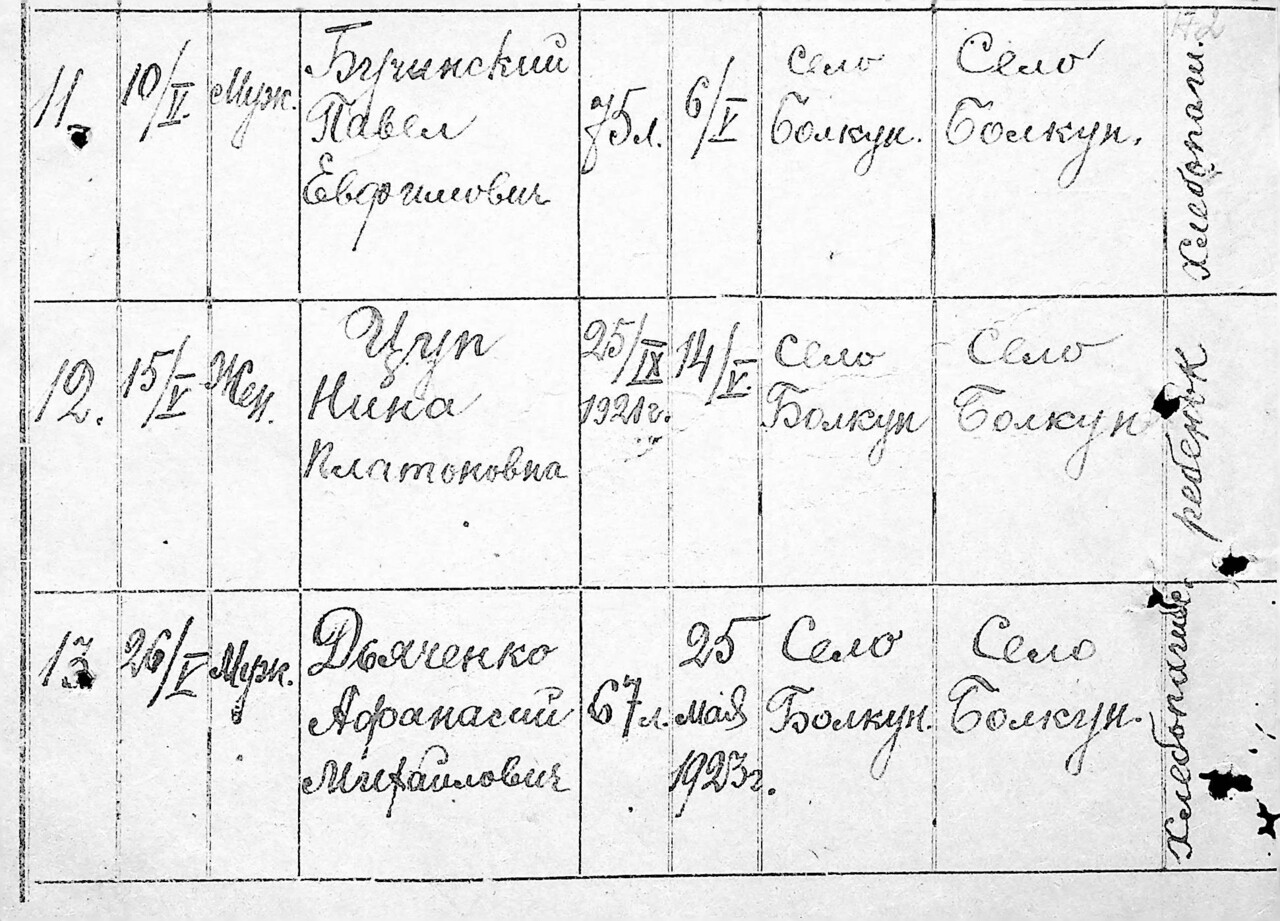 42
11.
10/V.
Муж.
Бгучинский
Павел
Евфимович
75 л.
6/V
село
Болкун.
Село
Болкун.
Хлебопаш.
12.
15/V
Жен.
Цуп
Нина
Платоновна
25/IX
1921 г.
14/V.
село
Болкун
Село
Болкун
ребенык
13
26/V
Муж.
Дьяченко
Афанасий
Михайлович
67 л.
25
мая
1923 г.
Село
Болкун.
Село
Болкун.
Хлебопашец